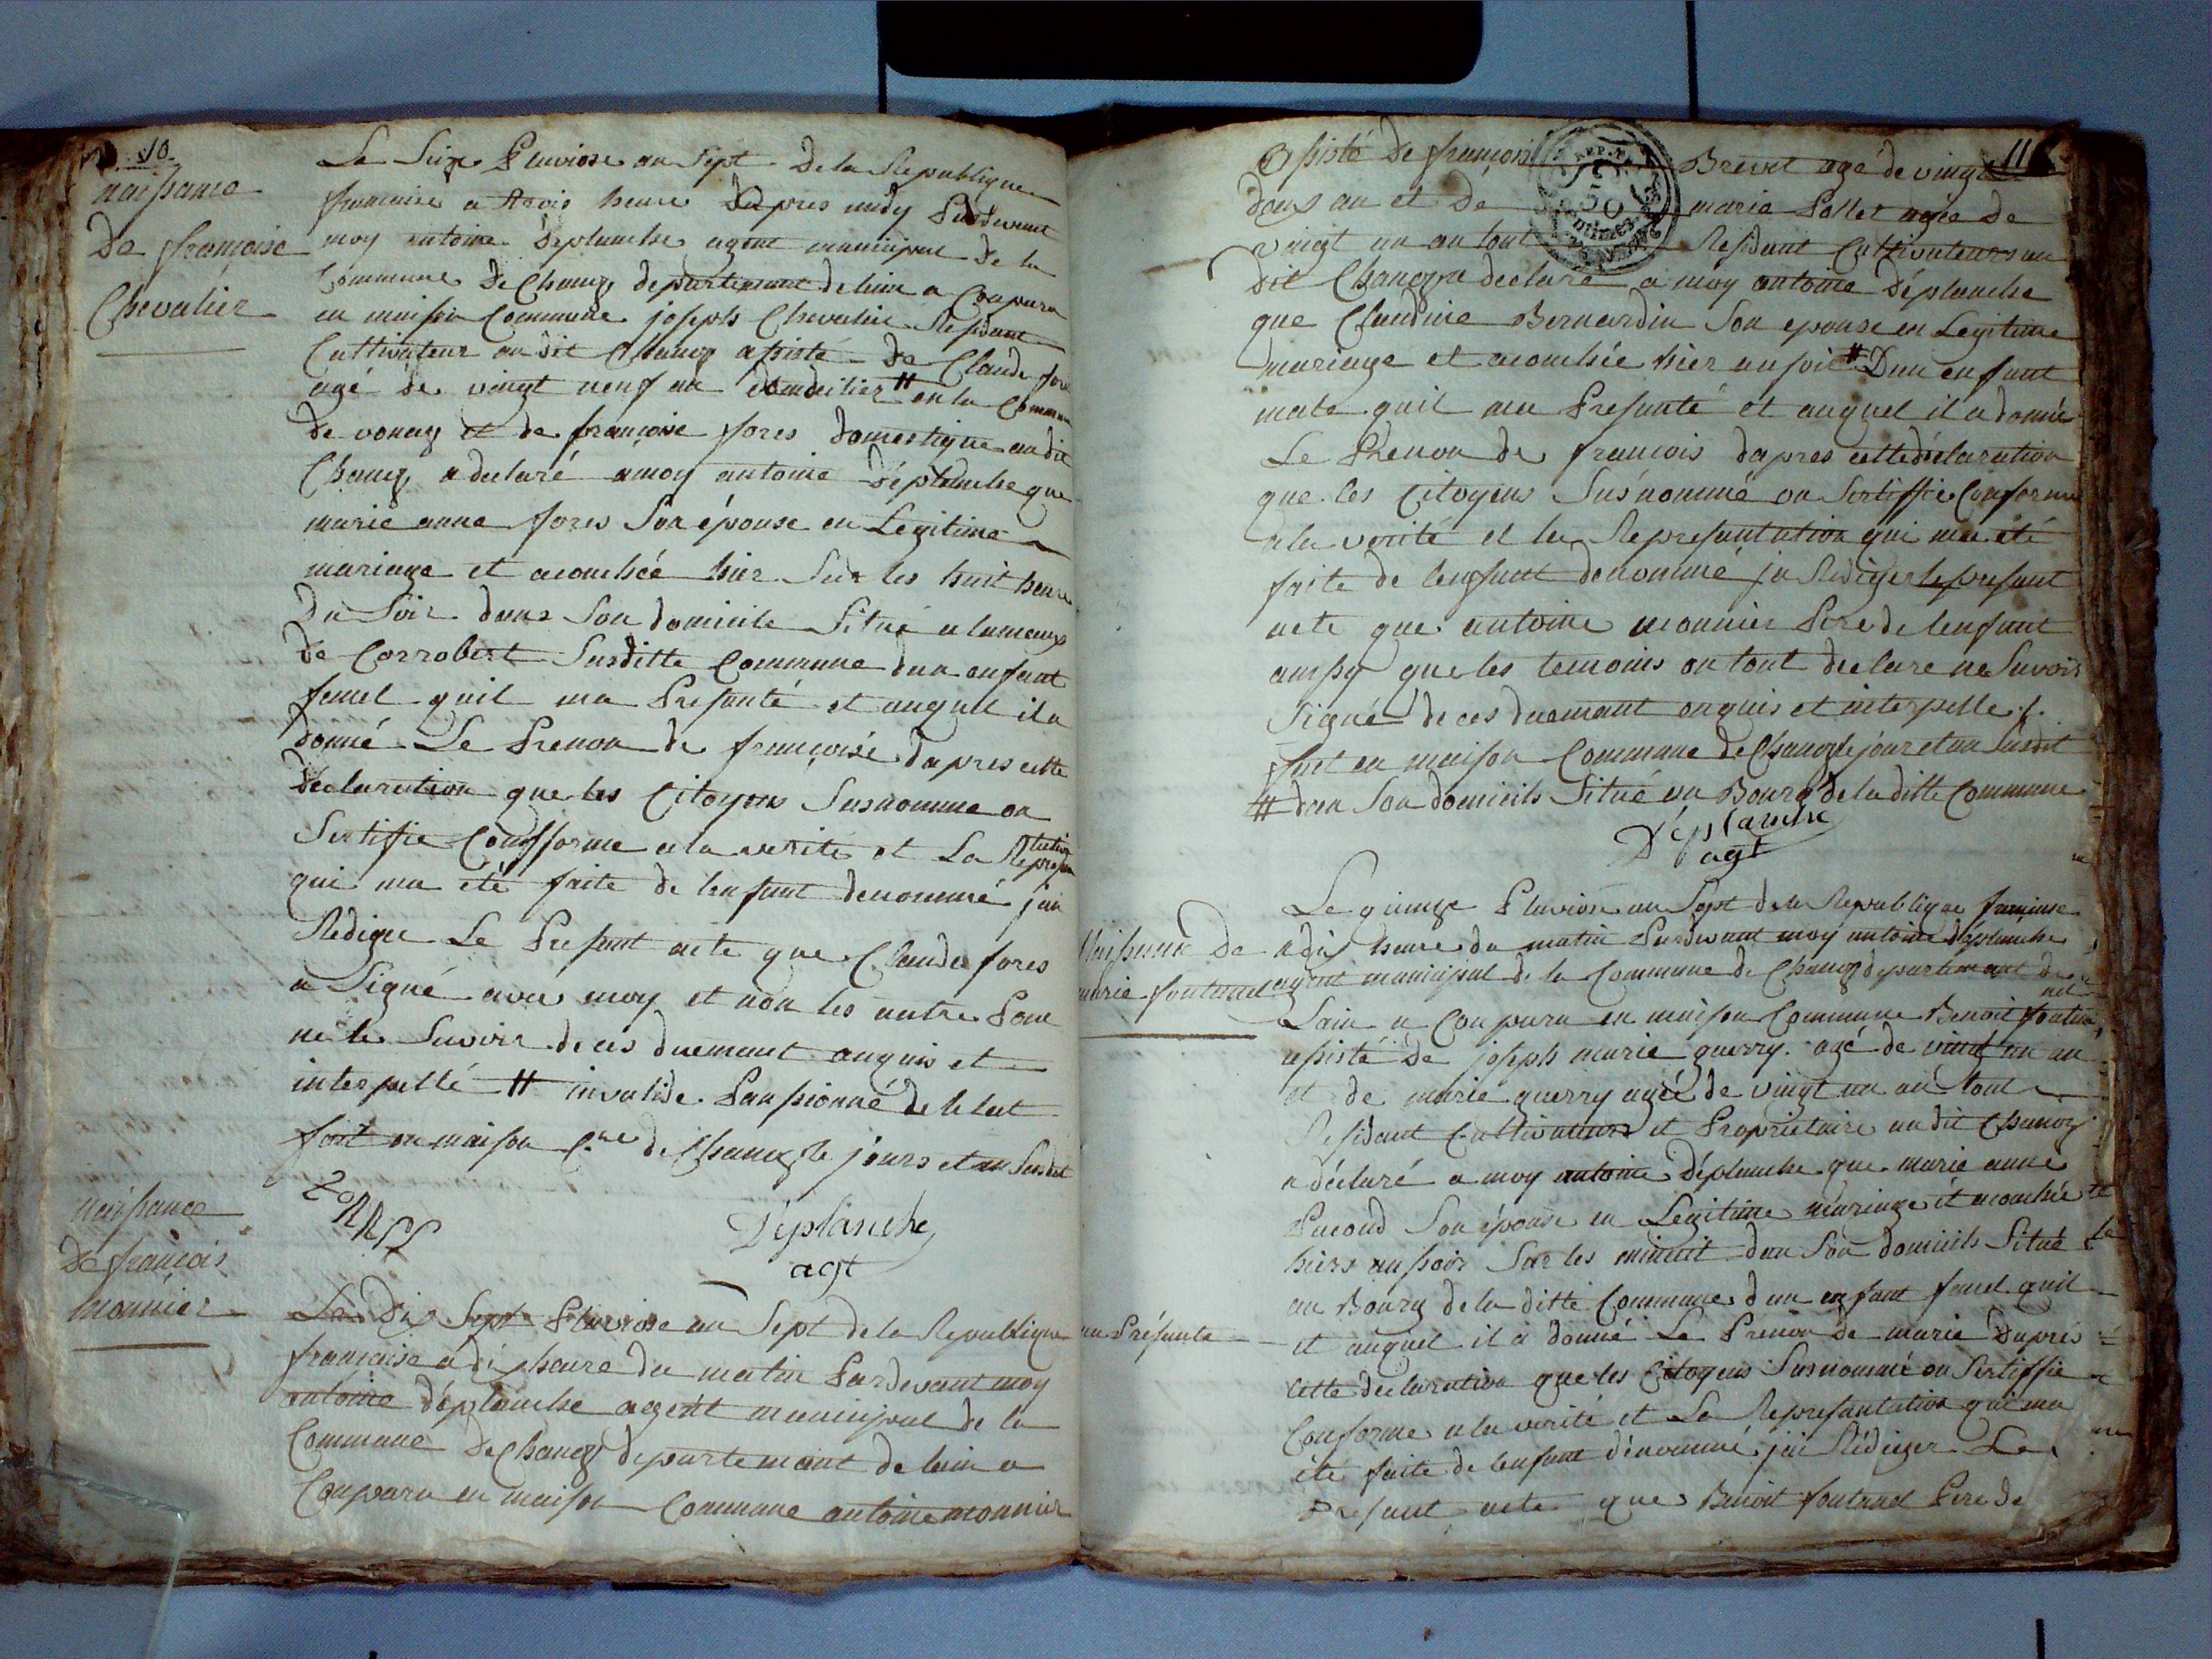 10
naissance
De françoise
Chevalier
Le Seize Pluviose an sept De la Republique
francaise a trois heure Dapres midy Pardevant
moy antoine Déplanche agent municipal De la
Commune De Chanoz departemant delain a Conparu
en maison Commune joseph Chevalier Residant
Cultivateur au dit Chanoz asisté De Claude fore
agé de vingt neuf an domicilier # en la Commune
De vonas et de francoise fores domestique au dit
Chanoz a declaré amoy antoine Déplanche que
marie anne fores Son épouse en Legitime
mariage et acouchée hier Sur les huit heure
Du Soir dans Son domicile Situé
De Corrobert Susditte Commune dun enfant
femel quil ma Presanté et auquel il a
donné Le Prenon de francoise dapres cette
Declaration que les Citoyens Susnomme on
Sertifie Confforme ala verité et La Represantation
qui ma été faite de lenfant denommé jai
Rediger Le Presant acte que Claude fores
a Signé avec moy et non les autre Pour
ne le Savoir de ces duemant anquis et
interpellé # invalide Pansionné de letat
fait en maison Cne de Chanoz le jours et an Susdit
Déplanche
agt
naissance
De francois
monnier
Le Dix Sept Pluviose an Sept de la Republique
francaise a dix heure du matin Pardevant moy
antoine déplanche agent municipal de la
Commune De Chanoz departemant de lain a
Conparu en maison Commune antoine monnier
11
asisté De francois Brevet agé de vingt
deux an et De marie Pollet agée De
vingt un an tout Residant Cultivateurs au
dit Chanoz a declaré a moy antoine Déplanche
que Claudine Bernardin Son epouse en Legitime
mariage et acouchée hier au soir # Dun enfant
male quil ma Presanté et auquel il a donné
Le Prenon de francois dapres cette declaration
que les Citoyens Susnommé on Sertiffie Conforme
ala verité et la Represantation qui ma été
faite de lenfant denommé ja Rediger le presant
acte que antoine monnier Pere de lenfant
ainsy que les temoins on tout declare ne Savoir
Signé de ces duemant anquis et interpelle
fait en maison Commune de Chanoz le jour et an Susdit
# dan Son domicile Situé au Bourg de la ditte Commune
Déplanche
agt
Naissance De
marie fontanel
Le quinze Pluviose an Sept de la Republique francaise
a dix heure du matin Pardevant moy antoine déplanche
agent municipal de la Commune De Chanoz departemant de
Lain a Conparu en maison Commune Benoit fontanel
asisté De joseph marie guerry agé de vingt un an
et de marie guerry agée de vingt un an tout
Residant Cultivateurs et Proprietaire au dit Chanoz
a déclaré a moy antoine Déplanche que marie anne
Pacoud Son épouse en Legitime mariage et acouchée
hiers au soir Sur les minuit dan Son domicile Situé
au Bourg de la ditte Commune dun enfant femel quil
ma Présanté et auquel il a donné Le Prenon de marie Dapres
cette declaration que les Citoyens Susnommé on Sertiffie
Conforme a la verité et La Represantation qui ma
été faite de lenfant dénommé jai Rédiger Le
Presant acte que Benoit fontanel Pere de